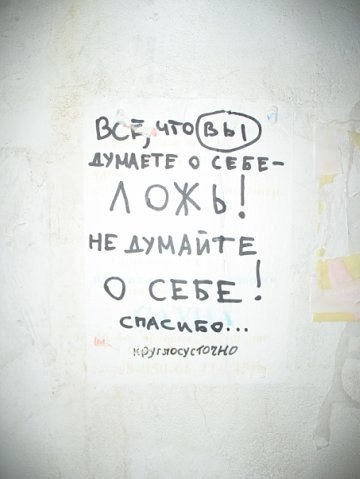 ВСЁ, ЧТО ВЫ
ДУМАЕТЕ О СЕБЕ-
ЛОЖЬ!
НЕ ДУМАЙТЕ
О СЕБЕ!
СПАСИБО...
КРУГЛОСУСТОЧНО